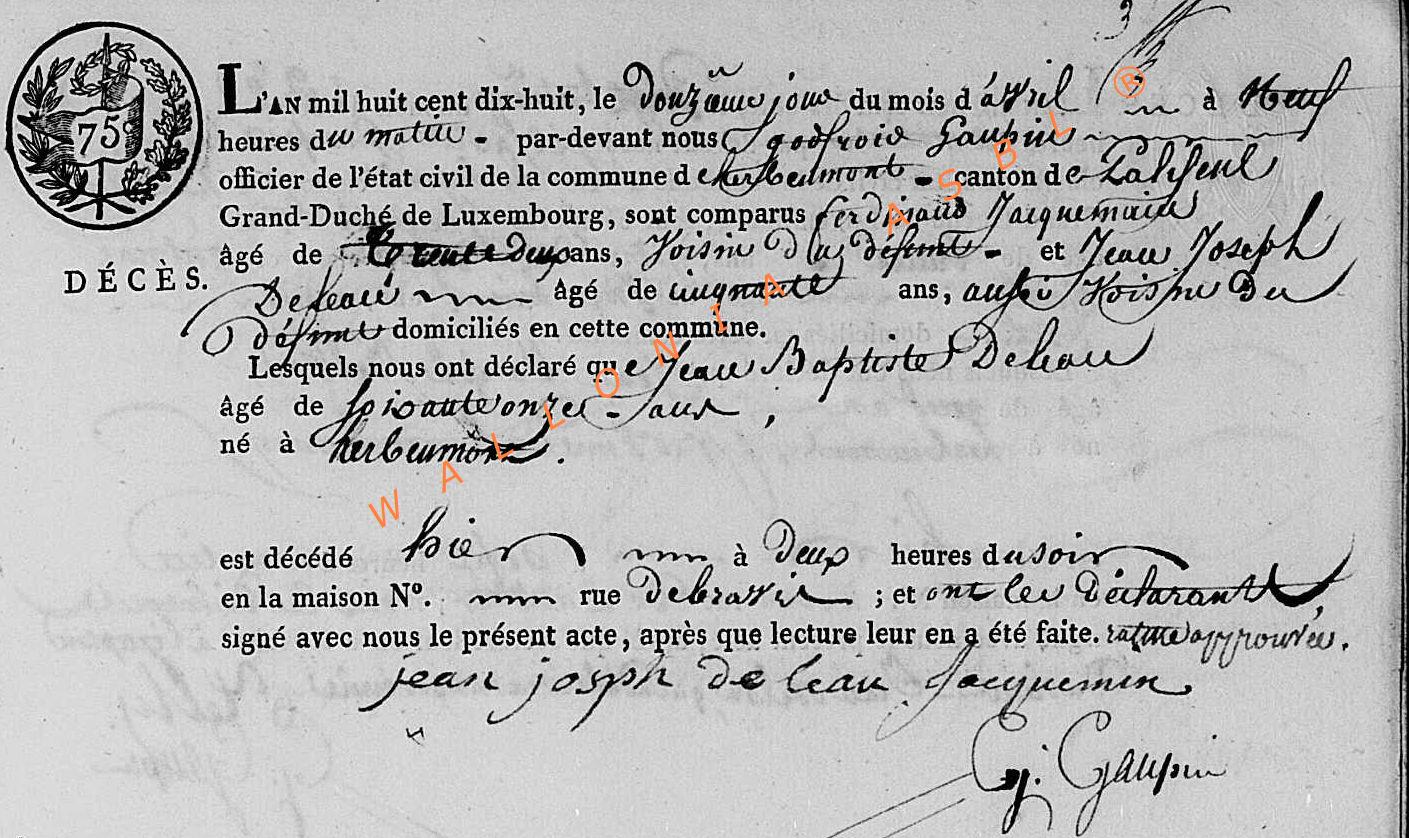 3
75c
L'AN mil huit cent dix-huit, le douzème jour du mois d'avril à Neuf
heures du matin - par-devant nous godfroid Gaupin
officier de l'état civil de la commune d'herbeumont - canton de Paliseul
Grand-Duché de Luxembourg, sont comparus ferdinand Jacquemin
âgé de trente deux ans, Voisin du défunt - et Jean Joseph
DÉCÈS.
Deleau âgé de cinquante ans, aussi Voisin Du
défunt domiciliés en cette commune.
Lesquels nous ont déclaré que Jean Baptiste Deleau
âgé de soixante onze - ans,
né à herbeumont.
est décédé hier à Deux heures du soir
en la maison N°. rue ; et ont les déclarants,
signé avec nous le présent acte, après que lecture leur en a été faite. rature approuvée.
jean josph de leau Jacquemin
G. Gaupin
WALLONIA ASBL ®